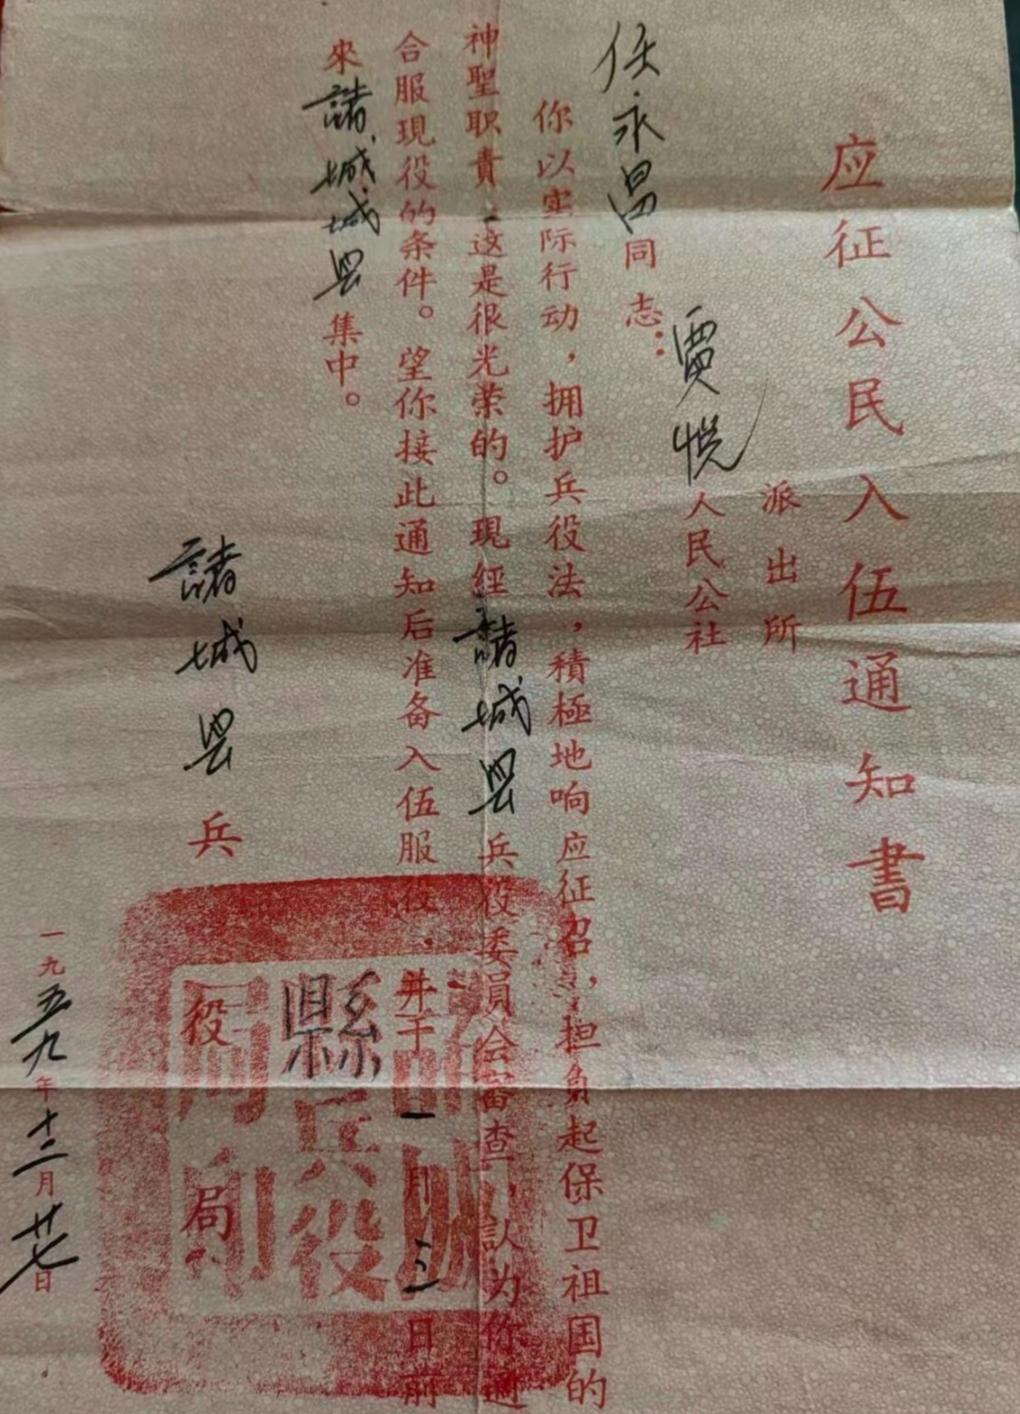 应征公民入伍通知書
派出所
賈悦人民公社
任永昌同志：
你以実际行动，拥护兵役法，積極地响应征召，担負起保卫祖国的
神聖职責，这是很光荣的。現經諸城县兵役委員会審查，认为你适
合服現役的条件。望你接此通知后准备入伍服役，并于一月三日前
來諸城城县集中。
諸城县兵役局
一九五九年十二月廿七日
縣兵役